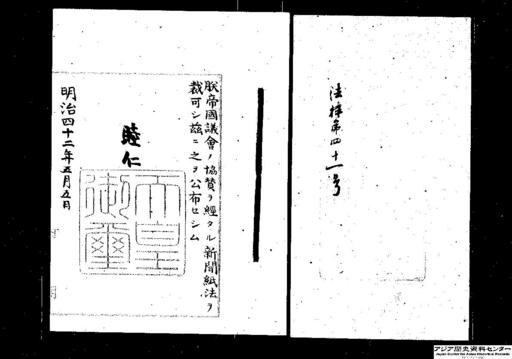 法律第四十一号
朕帝國議會ノ協賛ヲ經タル新聞紙法ヲ
裁可シ茲ニ之ヲ公布セシム
睦仁
天皇
御璽
明治四十二年五月五日
アジア歴史資料センター
Japan Center for Asian Historical Records